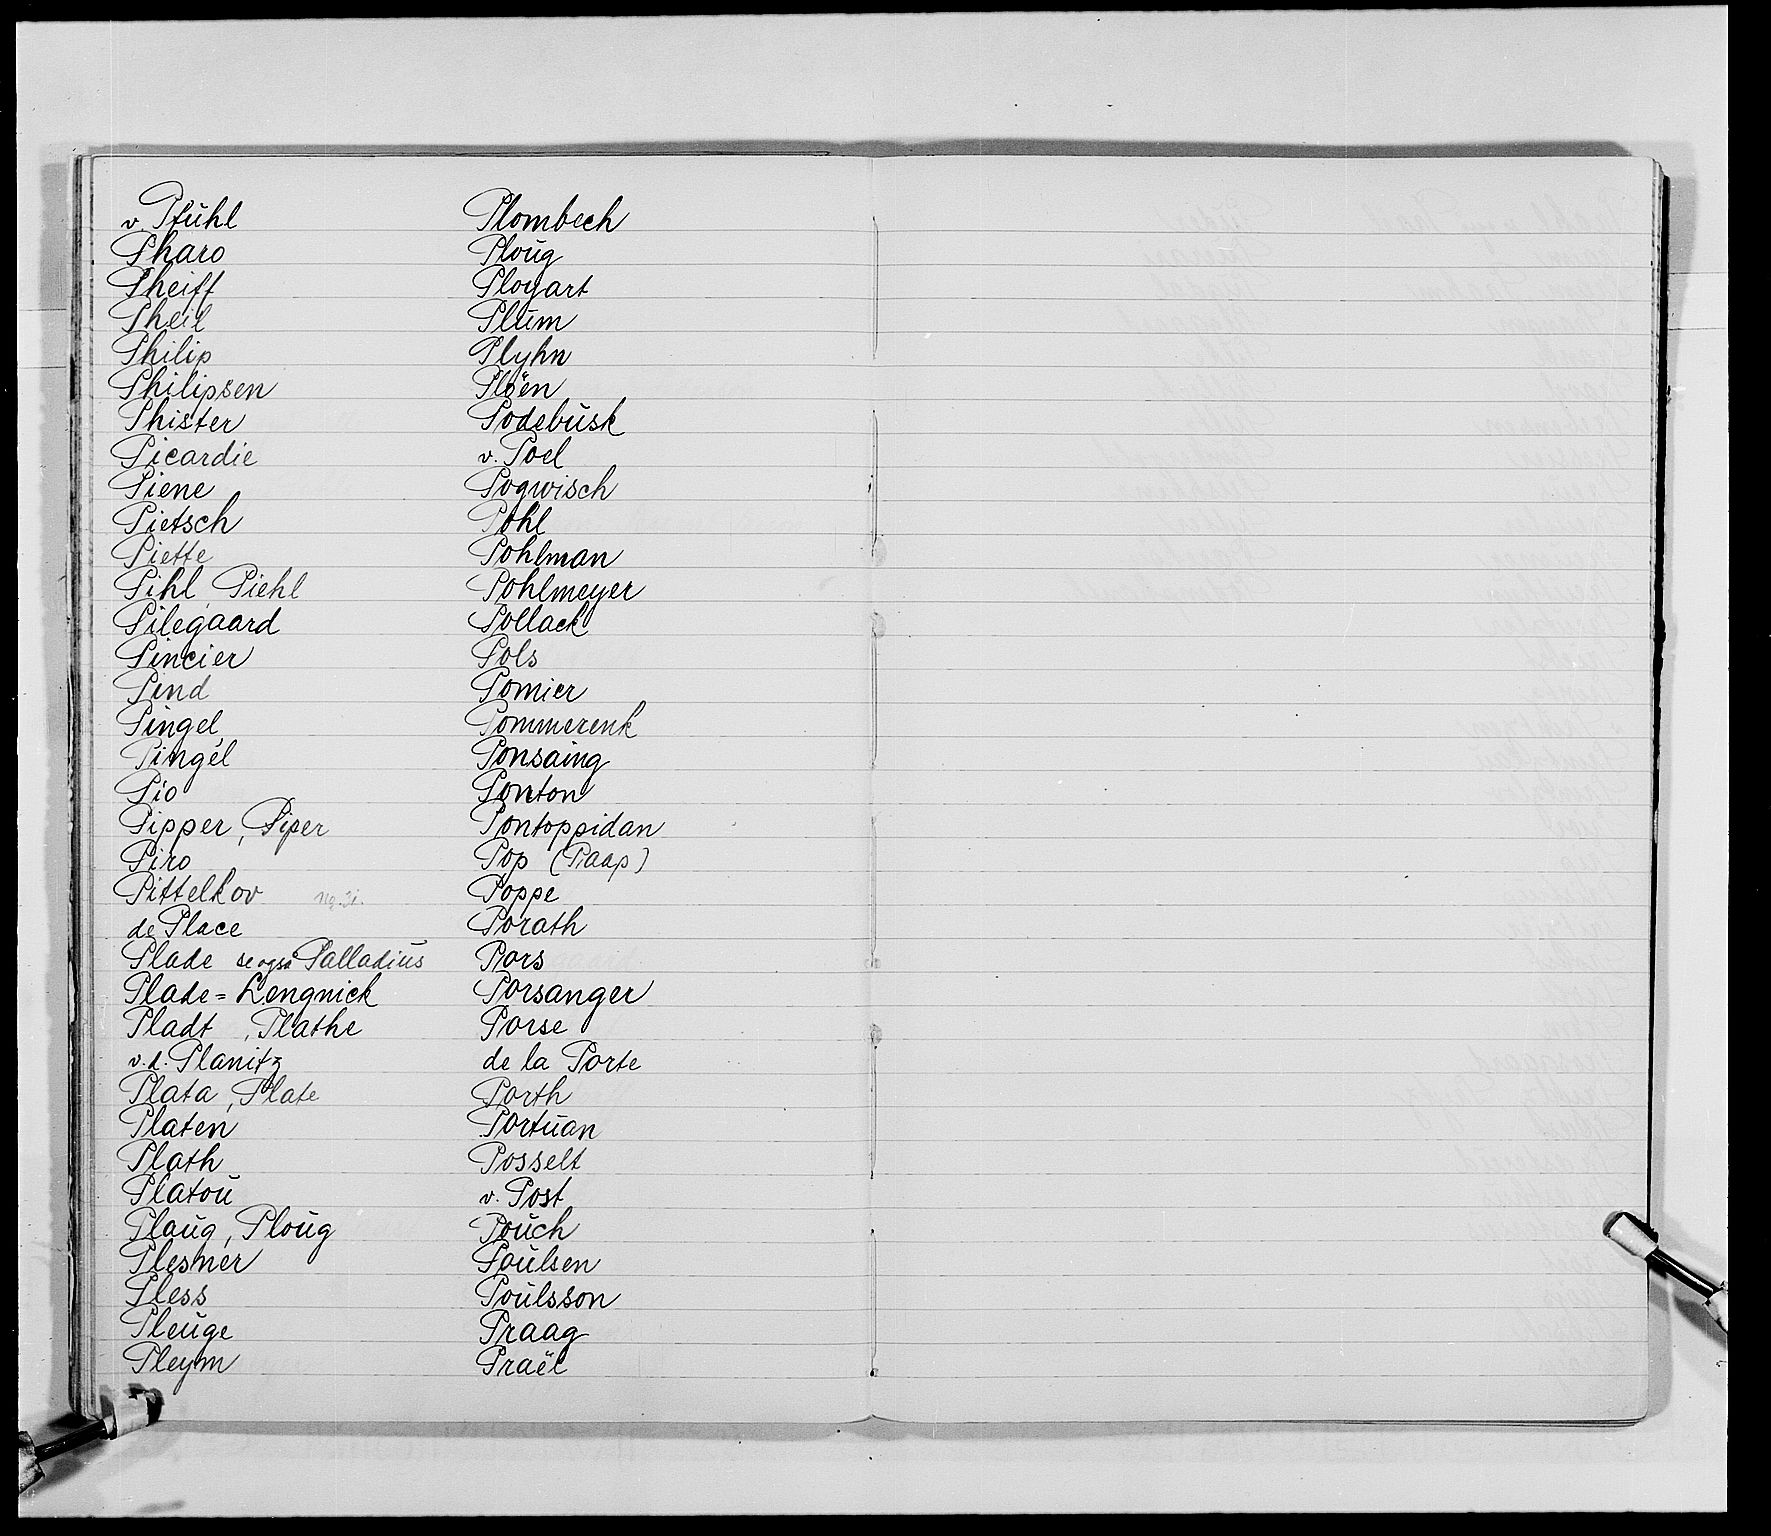 v. Pfühl
Pharo
Pheiff
Pheil
Philip
Philipsen
Phister
Picardie
Piene
Pietsch
Piette
Pihl Piehl
Pilegaard
Pincier
Pind
Pingel
Pingél
Pio
Pipper, Piper
Piro
Pittelkov
de Place
Plade se også Palladiūs
Plade=Lengnick
Pladt, Plathe
v.d. Planitz
Plata, Plate
Platen
Plath
Platoū
Plaūg, Ploūg
Plesner
Pless
Pleūge
Pleym
Plombech
Ploūg
Ployart
Plūm
Plyhn
Plöen
Podebūsk
v. Poel
Pogwisch
Pohl
Pohlman
Pohlmeyer
Pollack
Pols
Pomier
Pommerenk
Ponsaing
Ponton
Pontoppidan
Pop (Paap)
Poppe
Porath
Pors
Porsanger
Porse
de la Porte
Porth
Portūan
Posselt
v. Post
Poūch
Poūlsen
Poūlsson
Praag
Praël